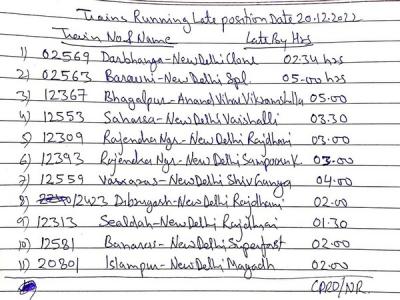 Trains Running Late position Date 20.12.2022
Train No. & Name Late By Hrs
1) 02569 Darbhanga-New Delhi Clone 02:34 hrs
2) 02563 Barauni-New Delhi Spl. 05.00 hrs
3) 12367 Bhagalpur-Anand Vihar Vikramshila 05.00
4) 12553 Saharsa-New Delhi Vaishali 03.30
5) 12309 Rajendra Ngr-New Delhi Rajdhani 03.00
6) 12393 Rajendra Ngr-New Delhi Sampoorn K. 03.00
7) 12559 Varanasi-New Delhi Shiv Ganga 04.00
8) 12423 Dibrugarh-New Delhi Rajdhani 02.00
9) 12313 Sealdah-New Delhi Rajdhani 01.30
10) 12581 Banaras-New Delhi Superfast 02.00
11) 20801 Islampur-New Delhi Magadh 02.00
CPRO/NR.